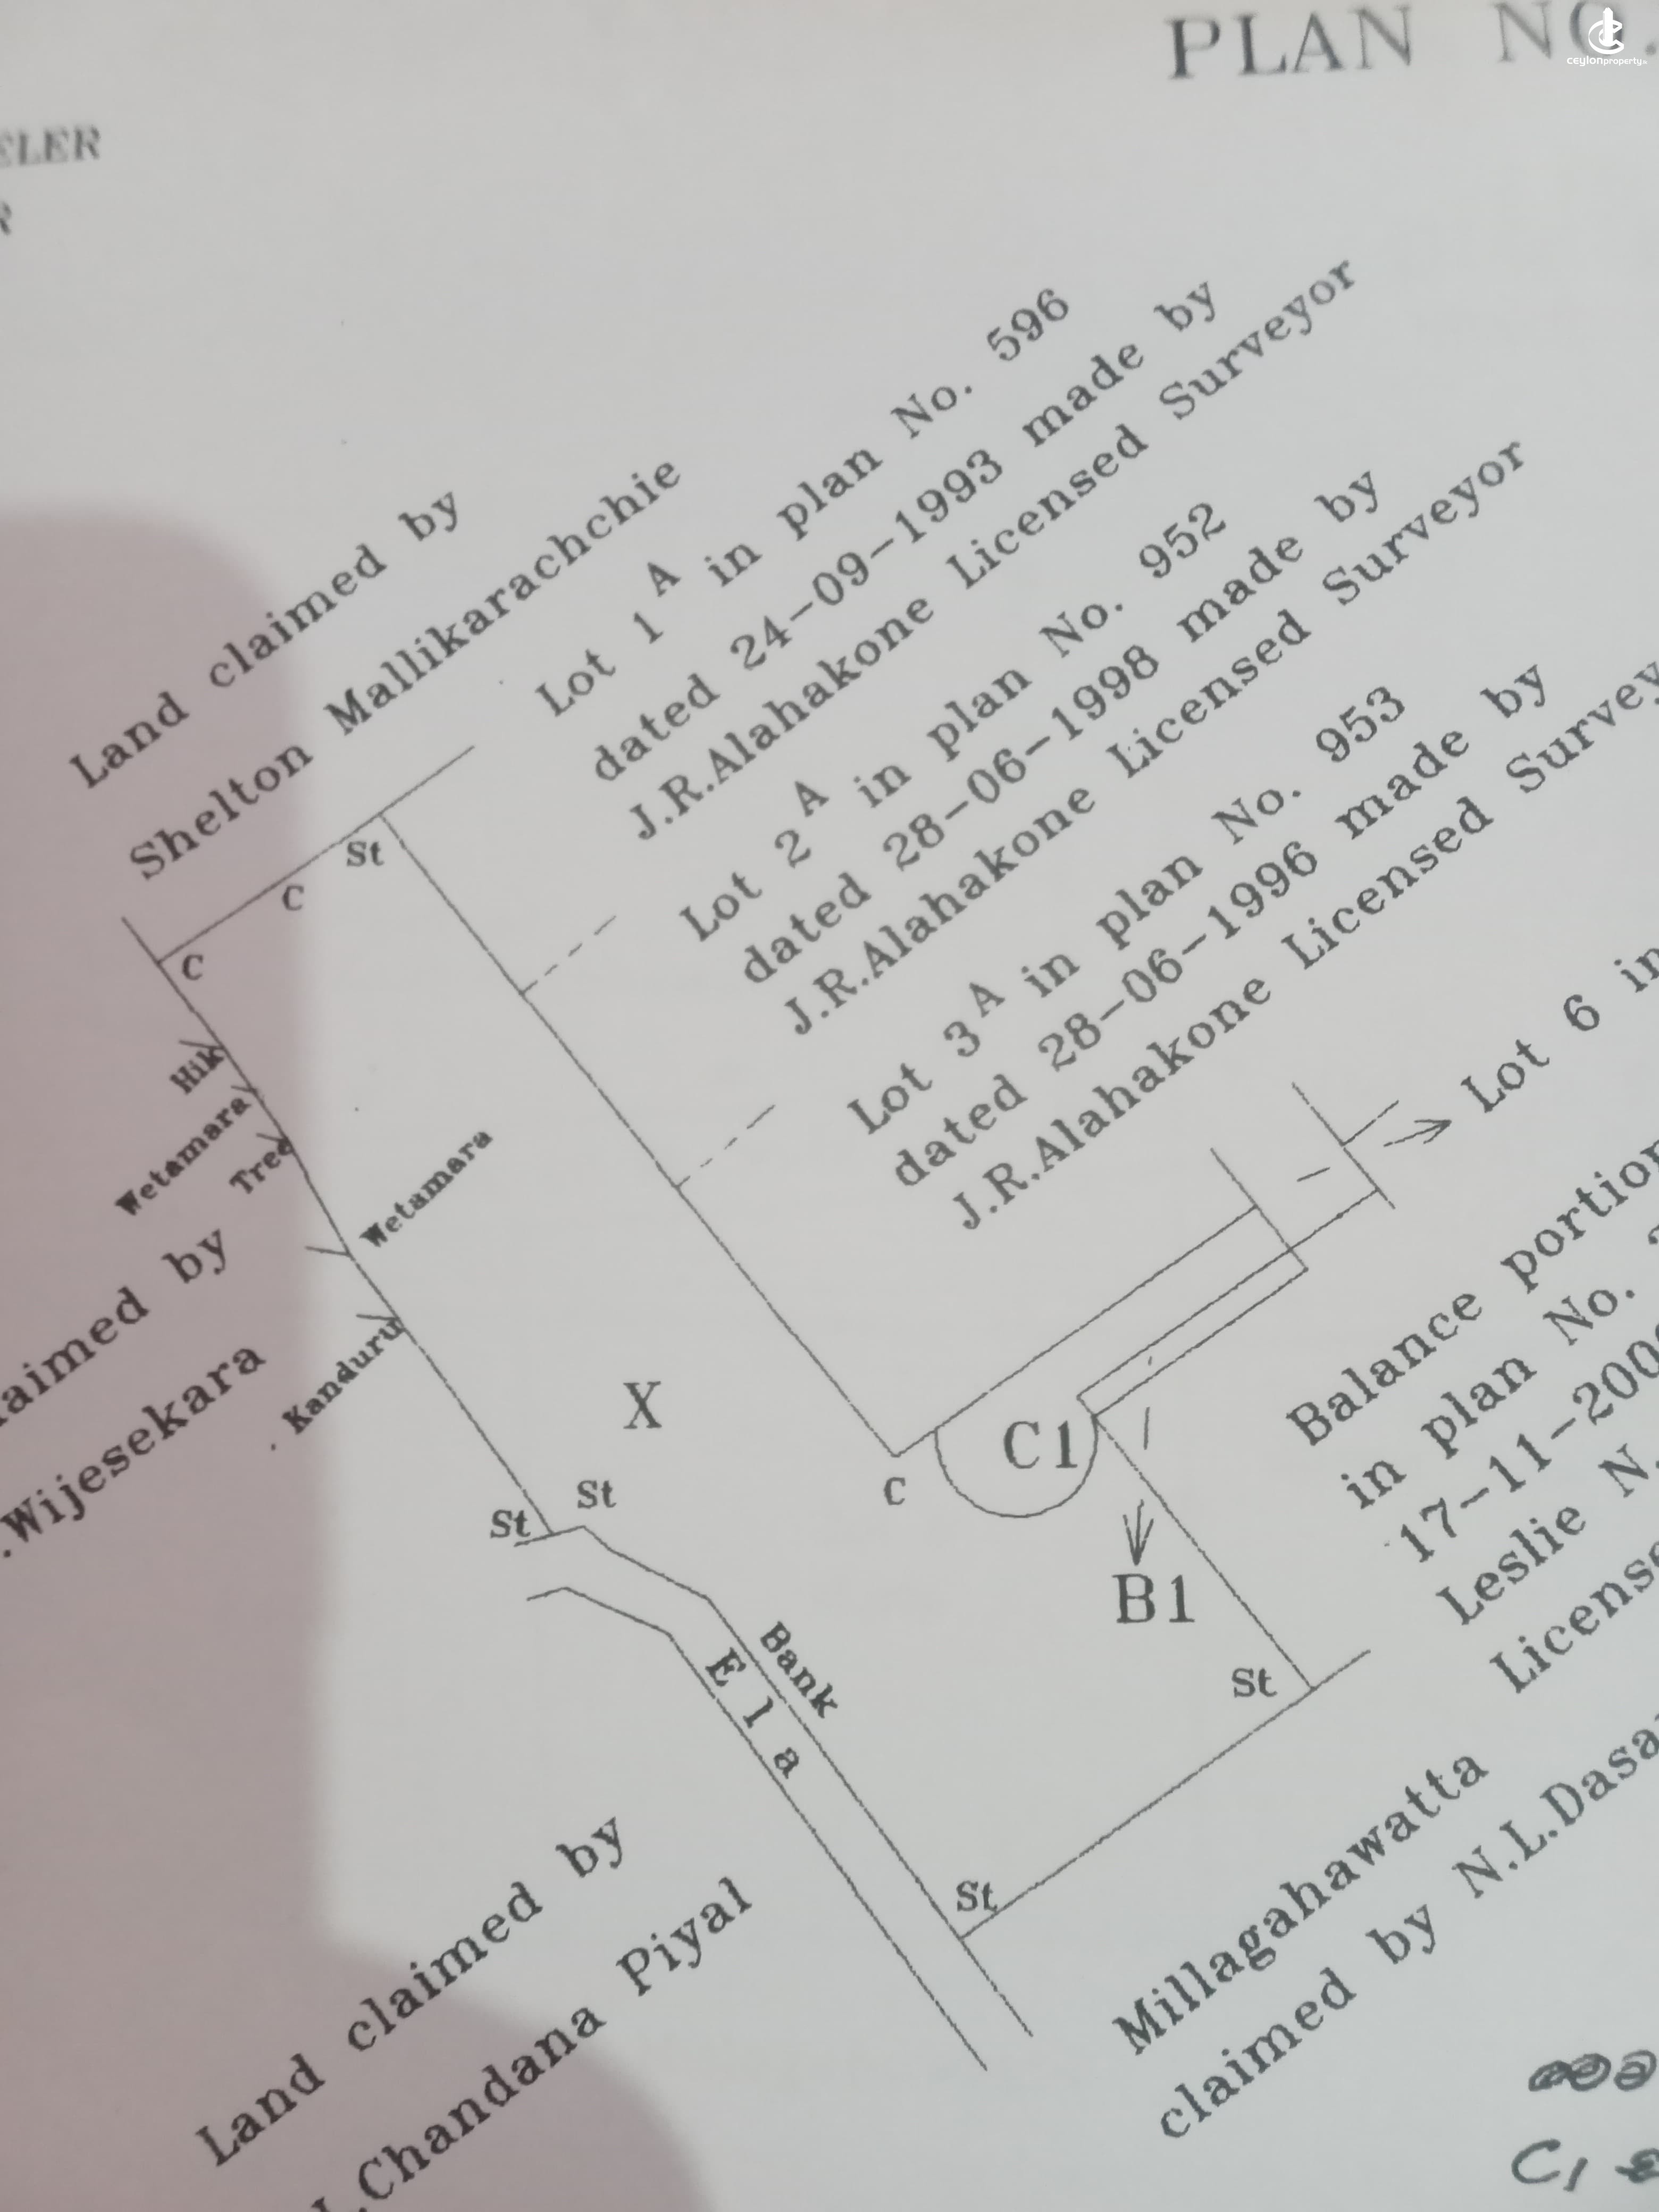 PLAN NO.
ceylonproperty.lk
ELER
R
Land claimed by
Shelton Mallikarachchie
Lot 1A in plan No. 596
dated 24-09-1993 made by
J.R.Alahakone Licensed Surveyor
Lot 2A in plan No. 952
dated 28-06-1998 made by
J.R.Alahakone Licensed Surveyor
Lot 3A in plan No. 953
dated 28-06-1996 made by
J.R.Alahakone Licensed Survey
Lot 6 in
St
C
C
Hik
Wetamara
Tree
Wetamara
Kanduru
aimed by
.Wijesekara
X
C1
C
B1
St
St
Bank
Ela
St
St
Balance portion
in plan No.
17-11-200
Leslie N.
License
Land claimed by
.Chandana Piyal
Millagahawatta
claimed by N.L.Dasa
C1